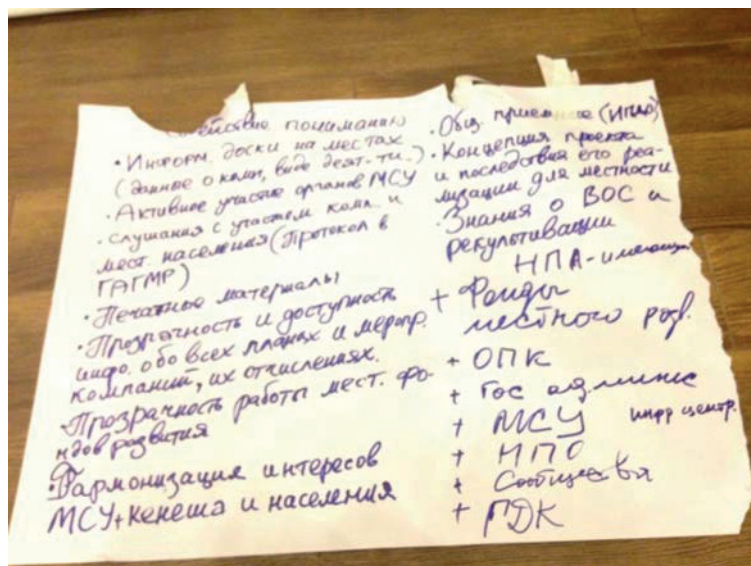 действие пониманию
• Информ. доски на местах
(данные о комп, виде деят-ти..)
• Активное участие органов МСУ
• Слушания с участием комп. и
мест. населения (Протокол в
ГАГМР)
• Печатные материалы
• Прозрачность и доступность
инфо. обо всех планах и меропр.
компаний, их отчислениях.
• Прозрачность работы мест. фо-
ндов развития
• Гармонизация интересов
МСУ+кенеша и населения
• Общ. приемные (ИПДО)
• Концепция проекта
и последствия его реа-
лизации для местности
• Знания о ВОС и
рекультивации
НПА-имеющи
+ Фонды
местного разв.
+ ОПК
+ Гос админс
+ МСУ инфр центр.
+ НПО
+ Сообщества
+ ПДК